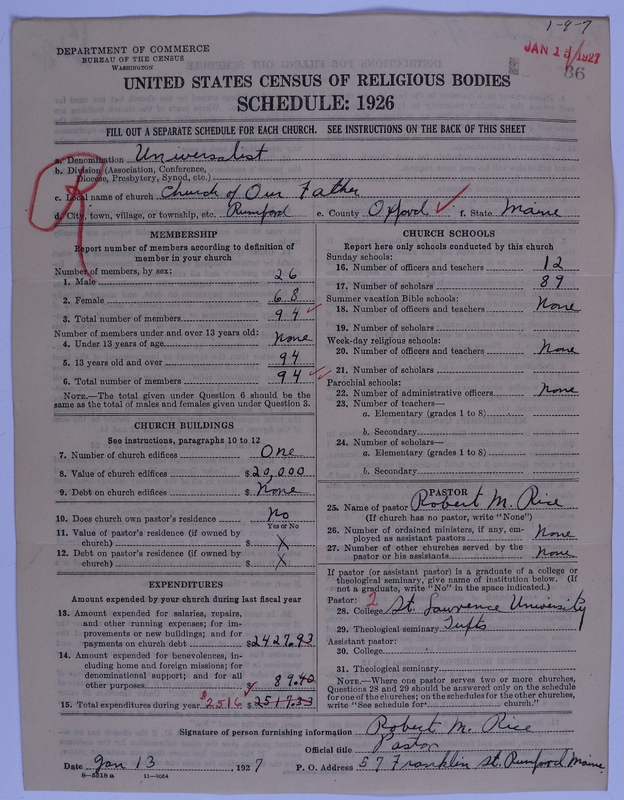 1-9-7
DEPARTMENT OF COMMERCE
BUREAU OF THE CENSUS
WASHINGTON
JAN 1 /1927
36
UNITED STATES CENSUS OF RELIGIOUS BODIES
SCHEDULE: 1926
FILL OUT A SEPARATE SCHEDULE FOR EACH CHURCH. SEE INSTRUCTIONS ON THE BACK OF THIS SHEET
R
a. Denomination Universalist
b. Division (Association, Conference, Diocese, Presbytery, Synod, etc.)
c. Local name of church Church of Our Father
d. City, town, village, or township, etc. Rumford e. County Oxford ✓ f. State Maine
MEMBERSHIP
Report number of members according to definition of member in your church
Number of members, by sex:
1. Male 26
2. Female 68
3. Total number of members 94 ✓
Number of members under and over 13 years old:
4. Under 13 years of age none
5. 13 years old and over 94
6. Total number of members 94 ✓
NOTE.—The total given under Question 6 should be same as the total of males and females given under Question 3.
CHURCH BUILDINGS
See instructions, paragraphs 10 to 12
7. Number of church edifices One
8. Value of church edifices $20,000
9. Debt on church edifices $ None
10. Does church own pastor's residence No
Yes or No
11. Value of pastor's residence (if owned by church) $ X
12. Debt on pastor's residence (if owned by church) $ X
EXPENDITURES
Amount expended by your church during last fiscal year
13. Amount expended for salaries, repairs, and other running expenses; for improvements or new buildings; and for payments on church debt $2427.93
14. Amount expended for benevolences, including home and foreign missions; for denominational support; and for all other purposes $ 89.40
15. Total expenditures during year $2516 $2517.33
CHURCH SCHOOLS
Report here only schools conducted by this church
Sunday schools:
16. Number of officers and teachers 12
17. Number of scholars 89
Summer vacation Bible schools:
18. Number of officers and teachers None
19. Number of scholars
Week-day religious schools:
20. Number of officers and teachers None
21. Number of scholars
Parochial schools:
22. Number of administrative officers None
23. Number of teachers—
a. Elementary (grades 1 to 8)
b. Secondary
24. Number of scholars—
a. Elementary (grades 1 to 8)
b. Secondary
PASTOR
25. Name of pastor Robert M. Rice
(If church has no pastor, write "None")
26. Number of ordained ministers, if any, employed as assistant pastors None
27. Number of other churches served by the pastor or his assistants None
If pastor (or assistant pastor) is a graduate of a college or theological seminary, give name of institution below. (If not a graduate, write "No" in the space indicated.)
Pastor: 2
28. College St. Lawrence University
29. Theological seminary Tufts
Assistant pastor:
30. College
31. Theological seminary
NOTE.—Where one pastor serves two or more churches, Questions 28 and 29 should be answered only on the schedule for one of the churches; on the schedules for the other churches, write "See schedule for church."
Signature of person furnishing information Robert M. Rice
Official title Pastor
Date Jan 13, 1927 P. O. Address 57 Franklin St. Rumford Maine
8—5518 a 11—9054